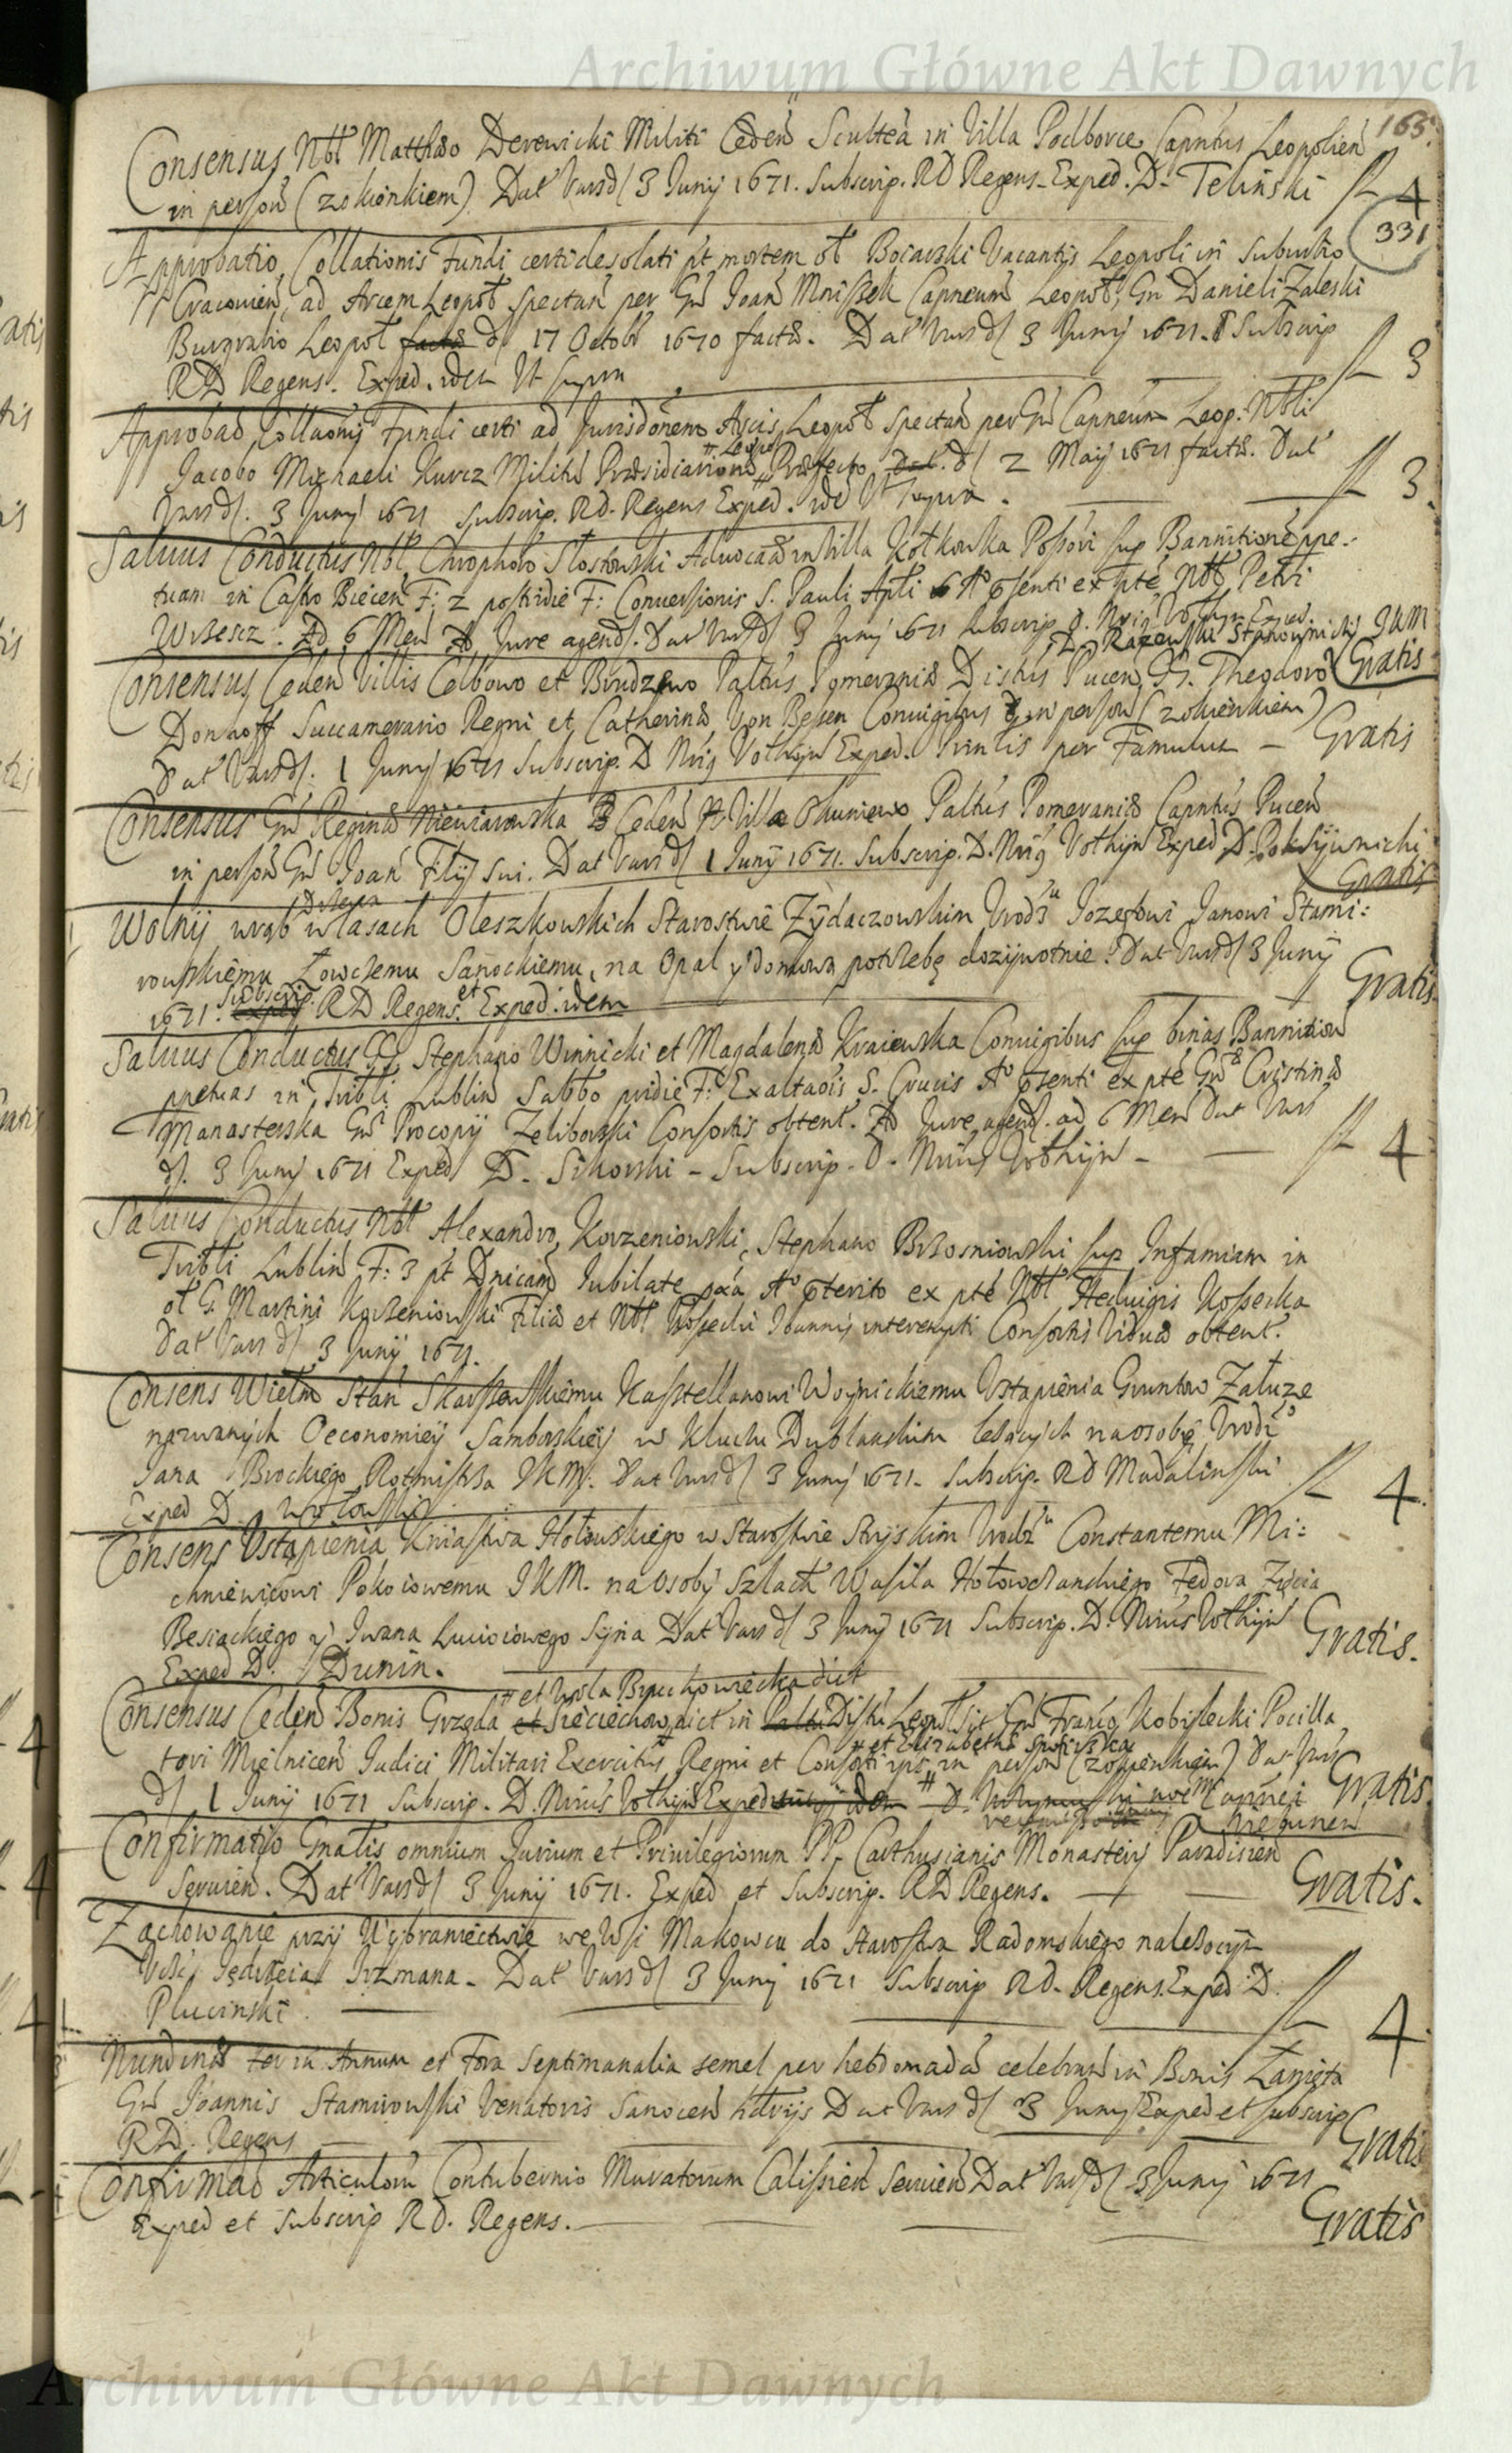 Archiwum Główne Akt Dawnych
165.
Consensus Nbl Matthæo Derewicki Militi Ceden Scultea in Villa Podborce Capntus Leopolien
in person (zokienkiem) Dat Vars d 3 Junij 1671. Subscrip. RD Regens. Exped. D. Teliński fl 4
331
Approbatio Collationis Fundi certi desolati pt mortem ol Bocarski Vacantis Leopoli in Suburbio
Cracovien, ad Arcem Leopol spectan per Gn Joan Mniszek Capneum Leopol, Gn Danieli Zaleski
Burgrabio Leopol d 17 Octobr 1670 factæ. Dat Vars d 3 Junij 1671. Subscrip
RD Regens. Exped. idem Ut supra fl 3
Approbao Collaonis Fundi certi ad Jurisdonem Arcis Leopol spectan per Gn Capneum Leop. Nbli
Jacobo Michaeli Kurcz Militu Præsidiariorum Leopol Præfecto d 2 Maij 1671 factæ. Dat
Vars d. 3 Junij 1671 Subscrip. RD. Regens Exped. ide Ut supra. fl 3.
Salvus Conductus Nbl Chrophoro Stostowski Advocaæ in Villa Kotkowka Possori sup Bannitione ppe:
tuam in Castro Biecen F: 2 postridie F: Conversionis S. Pauli Apli Ao psenti ex pte Nbl Petri
Wrzescz. Ad 6 Men Jure agend. Dat Vars d 3 Junij 1671 Subscrip. D. Nrig Vothijn Exped
D. Razowski Stanowniczy JKM Gratis
Consensus Ceden Villis Celbowo et Brudzewo Paltus Pomeraniæ Distus Pucen, G. Theodoro
Donhoff Succamerario Regni et Catherinæ Von Besen Coniugibus in person (zokienkiem)
Dat Vars d. 1 Junij 1671 Subscrip. D Nrig Vothijn Exped. Printis per Famulum – Gratis
Consensus Gn Reginæ Niewiarowska Ceden Villa Paltus Pomeraniæ Capntus Pucen
in person Gn Joan Filij sui. Dat Vars d 1 Junij 1671. Subscrip. D. Nrig Vothijn Exped D. Pokrzywnicki
Gratis
Wolny wrąb Drzewa w lasach Oleszkowskich Starostwie Zydaczowskim Vrodz Jozefowi Janowi Stami:
rowskiemu Łowczemu Sanockiemu, na Opał y domową potrzebę dozijwotnie. Dat Vars d 3 Junij
1671. Subscrip. RD Regens. et Exped. idem Gratis
Salvus Conductus G. Stephano Winnicki et Magdalenæ Kraiewska Coniugibus sup binas Bannition
ppetuas in Tribli Lublin Sabbo pridie F: Exaltaois S. Crucis Ao psenti ex pte Gn Cristinæ
Manasterska Gn Procopij Zeliborski Consortis obtent. Ad Jure agend. ad 6 Men Dat Vars
d. 3 Junij 1671 Exped D. Sikorski – Subscrip. D. Nrius Vothijn – fl 4
Salvus Conductus Nbl Alexandro Korzeniowski, Stephano Brzosniowski sup Infamiam in
Tribli Lublin F: 3 pt Dnicam Jubilate pxa Ao pterito ex pte Nbl Hedvigis Kossecka
ol G. Martini Korzeniowski Filiæ et Nbl Kossecki Joannis interempti Consortis Viduæ obtent.
Dat Vars d 3 Junij 1671.
Consens Wielm Stan Skarszewskiemu Kasztellanowi Woynickiemu Ustąpienia Gruntow Załuze
nazwanych Oeconomiey Samborskiey w Kluczu Dublanskim lezących na osobę Vrodz
Jana Brockiego Rotmistrza JKM: Dat Vars d 3 Junij 1671. Subscrip. RD Madalinski
Exped D. fl 4.
Consens Ustąpienia Kniastwa Hołowskiego w Starostwie Stryjskim Vrodz Constantemu Mi:
chniewiczowi Pokoiowemu JKM. na osoby Szlach Wasila Hołowczanskiego Fedora Zięcia
Besiackiego y Iwana Luciociowego Syna Dat Vars d 3 Junij 1671 Subscrip. D. Nrius Vothijn
Exped D. Dunin. Gratis.
et Wola Bruchowiecka dict
Consensus Ceden Bonis Grzęda Sieciechow dict in Distu Leopol sit Gn Franco Kobylecki Pocilla
tori Mielnicen Judici Militari Exercitus Regni et Consorti ips et Elizabethæ in person (zokienkiem) Dat Vars
d 1 Junij 1671 Subscrip. D. Nrius Vothijn Exped Gratis
Confirmatio Gnalis omnium Jurium et Privilegiorum PP. Carthusianis Monasterij Paradisien
Servien. Dat Vars d 3 Junij 1671. Exped et Subscrip. RD Regens. Gratis.
Zachowanie przy Wybraniectwie we Wsi Makowcu do Starostwa Radomskiego nalezocym
Jędrzeia Dat Vars d 3 Junij 1671 Subscrip RD. Regens. Exped. D.
Plucinski. fl 4.
Nundinæ ter in Annum et Fora Septimanalia semel per hebdomada celebran in Bonis Łanięta
Gn Joannis Stamirowski Venatoris Sanocen hdrijs Dat Vars d 3 Junij Exped et subscrip
RD. Regens Gratis
Confirmao Articulorum Contubernio Muratorum Calissien Servien Dat Vars d 3 Junij 1671
Exped et Subscrip RD. Regens. Gratis
Archiwum Główne Akt Dawnych